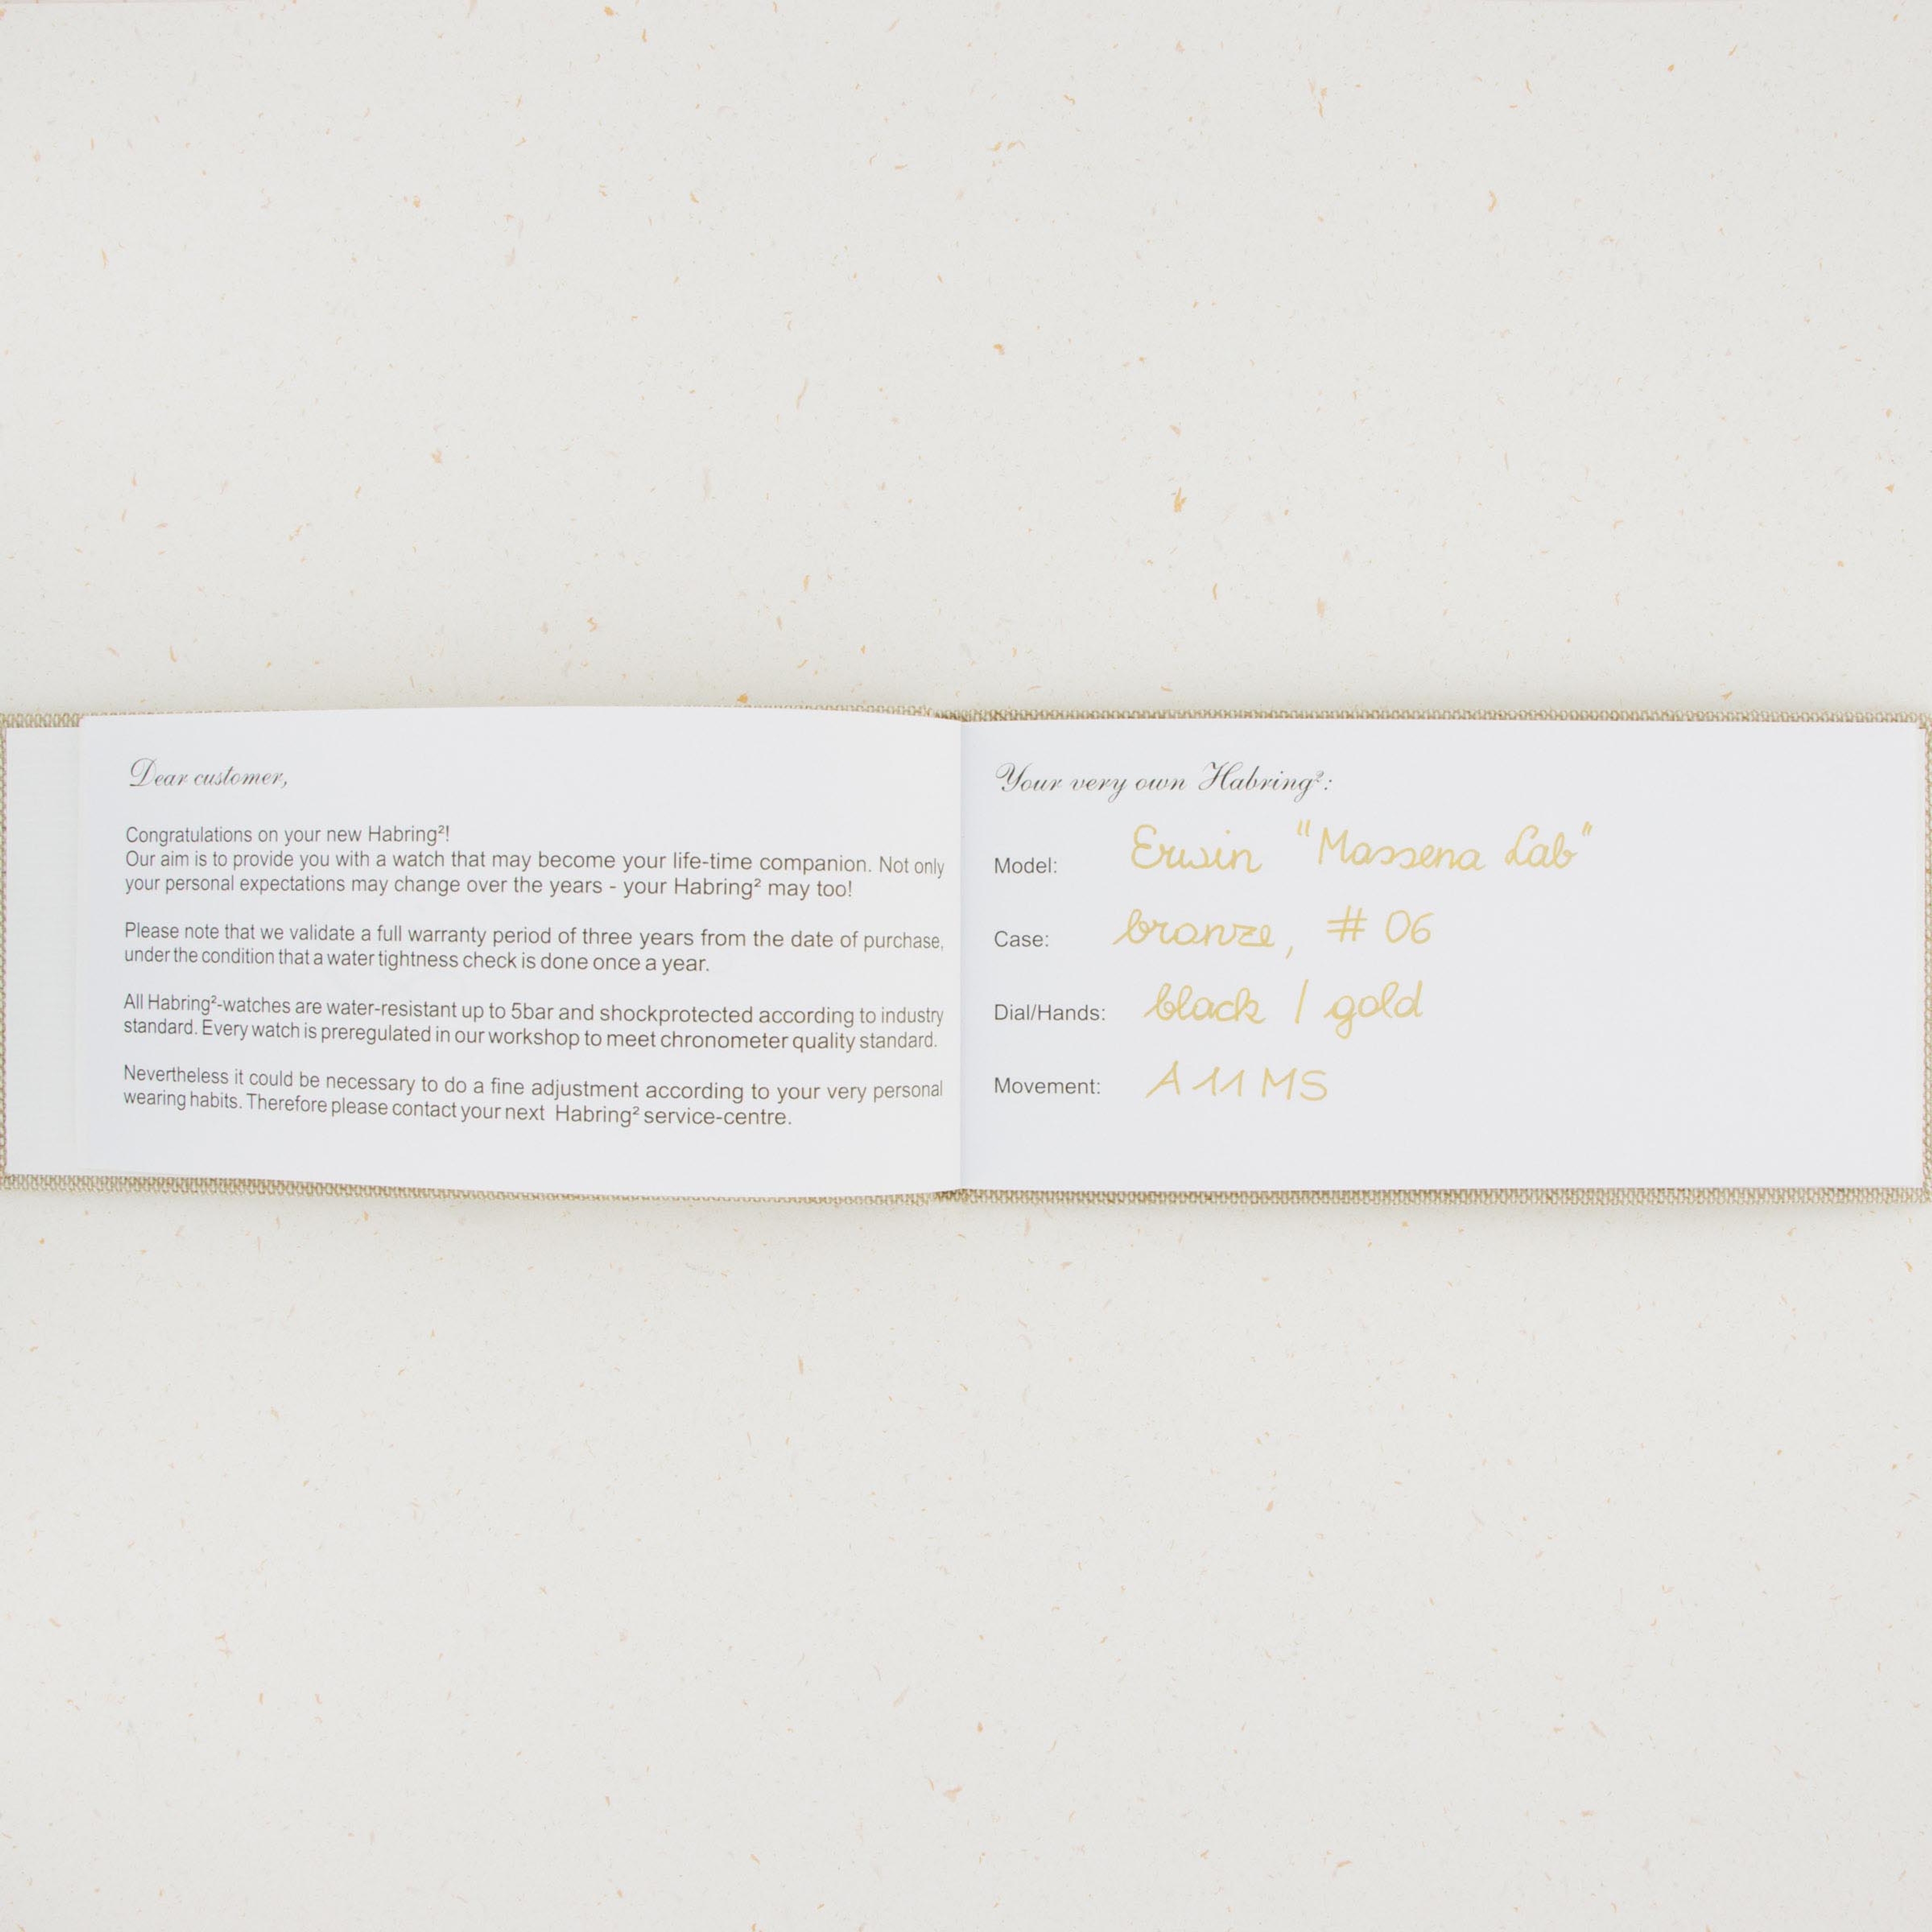 Dear customer,
Congratulations on your new Habring²!
Our aim is to provide you with a watch that may become your life-time companion. Not only
your personal expectations may change over the years - your Habring² may too!
Please note that we validate a full warranty period of three years from the date of purchase,
under the condition that a water tightness check is done once a year.
All Habring²-watches are water-resistant up to 5bar and shockprotected according to industry
standard. Every watch is preregulated in our workshop to meet chronometer quality standard.
Nevertheless it could be necessary to do a fine adjustment according to your very personal
wearing habits. Therefore please contact your next Habring² service-centre.
Your very own Habring²:
Model: Erwin "Massena Lab"
Case: bronze, # 06
Dial/Hands: black / gold
Movement: A11MS